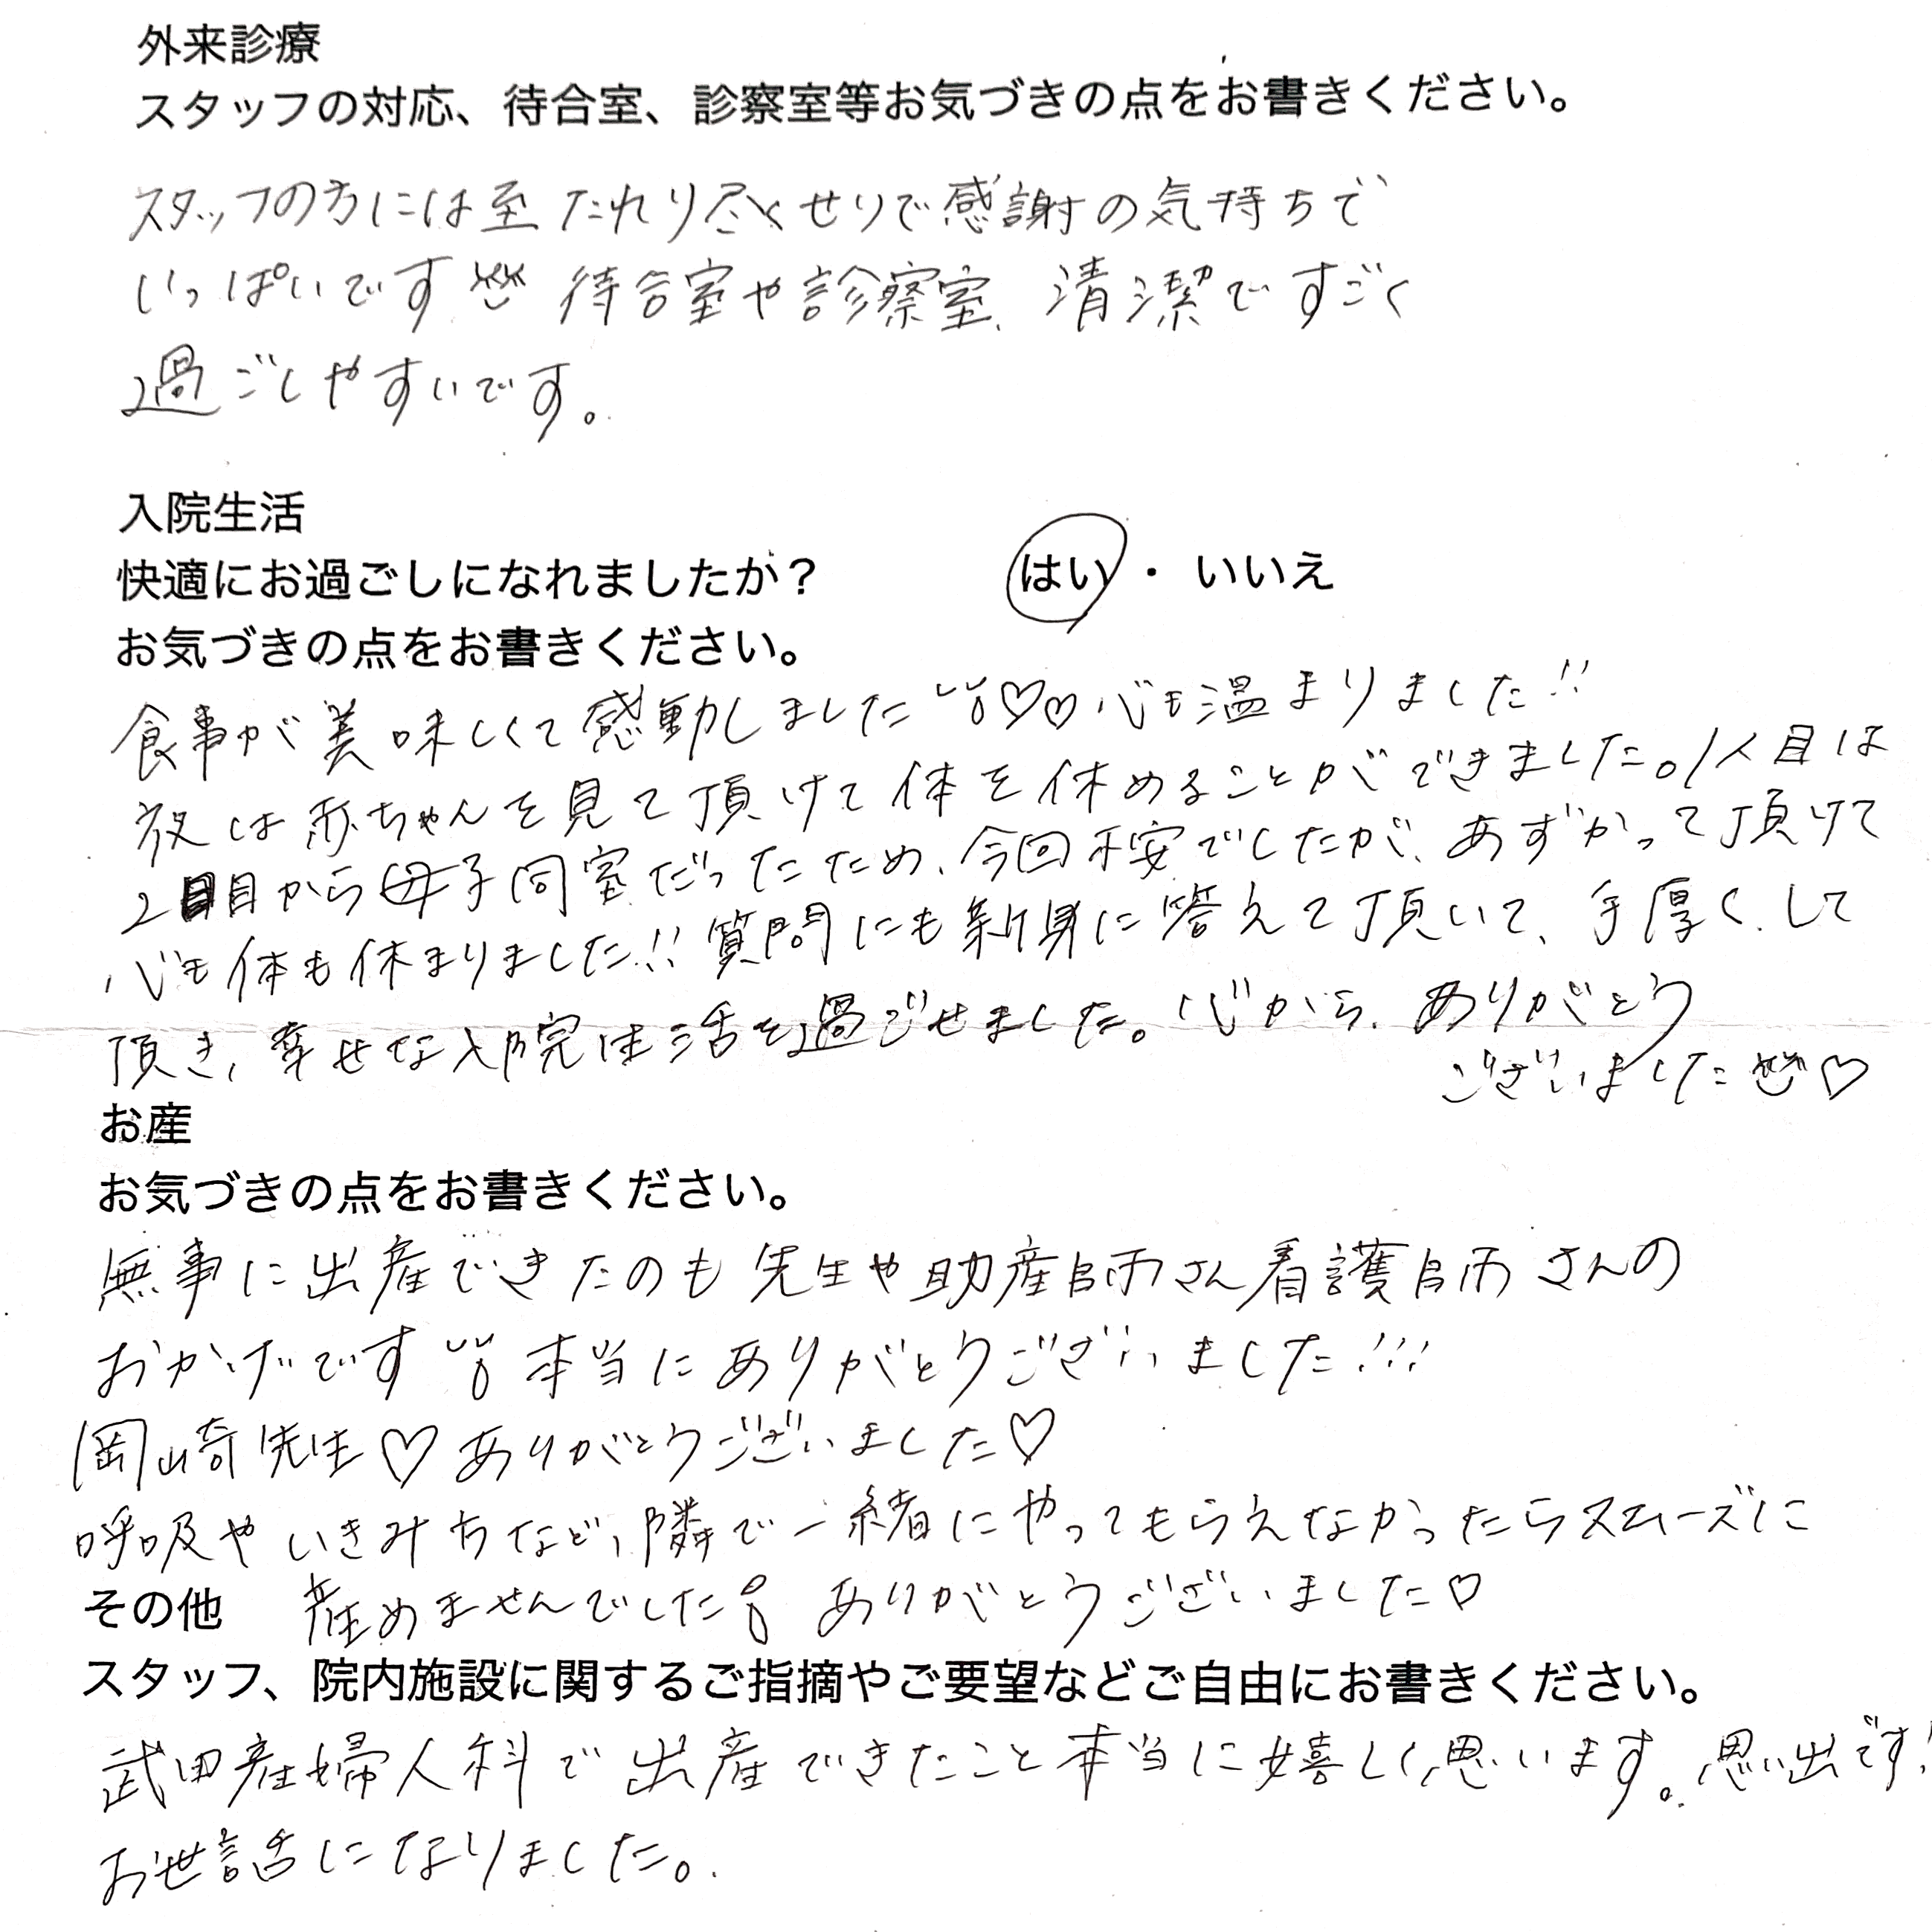 外来診療
スタッフの対応、待合室、診察室等お気づきの点をお書きください。
スタッフの方には至たれり尽くせりで感謝の気持ちで
いっぱいです 待合室や診察室、清潔ですごく
過ごしやすいです。
入院生活
快適にお過ごしになれましたか？ はい ・ いいえ
お気づきの点をお書きください。
食事が美味しくて感動しました♡♡心も温まりました!!
夜は赤ちゃんを見て頂けて体を休めることができました。1人目は
2日目から母子同室だったため、今回不安でしたが、あずかって頂けて
心も体も休まりました!!質問にも親身に答えて頂いて、手厚くして
頂き、幸せな入院生活を過ごせました。心から、ありがとう
ございました♡
お産
お気づきの点をお書きください。
無事に出産できたのも先生や助産師さん看護師さんの
おかげです 本当にありがとうございました!!!
岡崎先生♡ありがとうございました♡
呼吸やいきみ方など、隣で一緒にやってもらえなかったらスムーズに
その他 産めませんでした ありがとうございました♡
スタッフ、院内施設に関するご指摘やご要望などご自由にお書きください。
武田産婦人科で出産できたこと本当に嬉しく思います。思い出です!
お世話になりました。